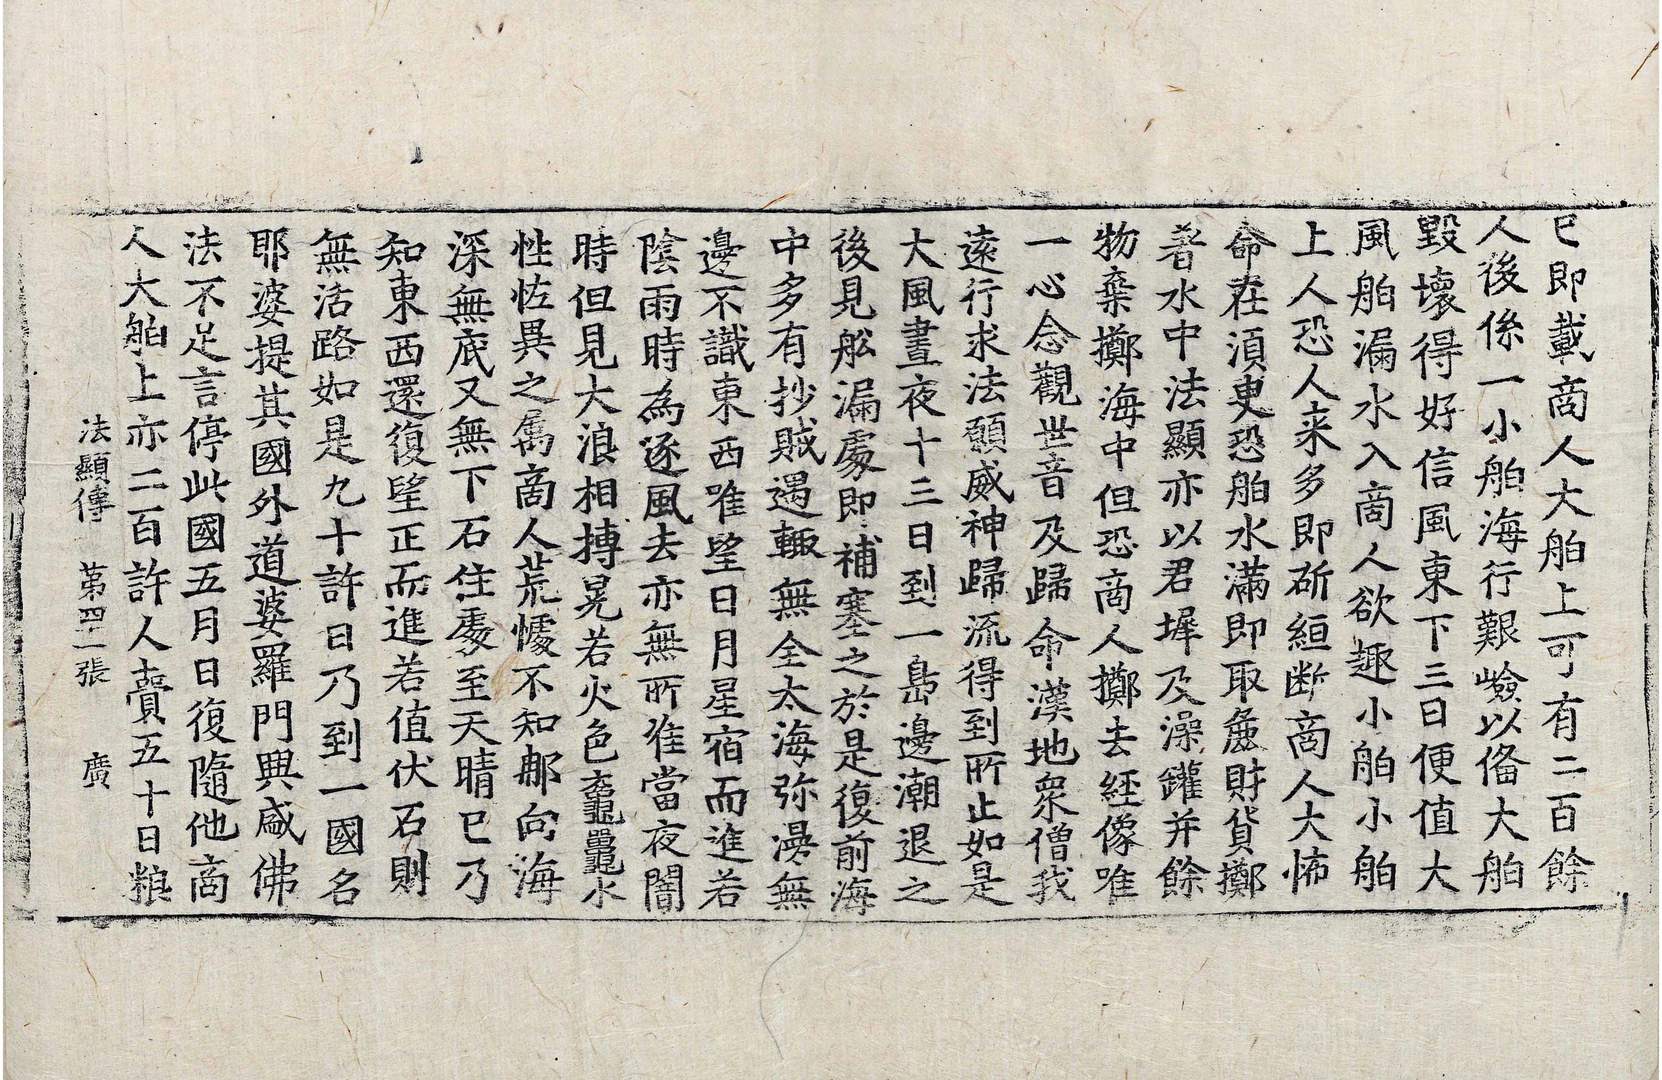 已即載商人大舶上可有二百餘
人後係一小舶海行艱嶮以俻大舶
毀壞得好信風東下三日便值大
風舶漏水入商人欲趣小舶小舶
上人恐人来多即斫絙断商人大怖
命在湏臾恐舶水滿即取麁財貨擲
著水中法顯亦以君墀及澡鑵并餘
物棄擲海中但恐商人擲去經像唯
一心念觀世音及歸命漢地衆僧我
遠行求法願威神歸流得到所止如是
大風晝夜十三日到一島邊潮退之
後見舩漏處即補塞之於是復前海
中多有抄賊遇輙無全太海弥漫無
邊不識東西唯望日月星宿而進若
陰雨時為逐風去亦無所准當夜闇
時但見大浪相搏晃若火色黿鼉水
性恠異之属商人荒懅不知那向海
深無底又無下石住處至天晴已乃
知東西還復望正而進若值伏石則
無活路如是九十許日乃到一國名
耶婆提其國外道婆羅門興盛佛
法不足言停此國五月日復隨他商
人大舶上亦二百許人賷五十日粮
法顯傳 第四二張 廣